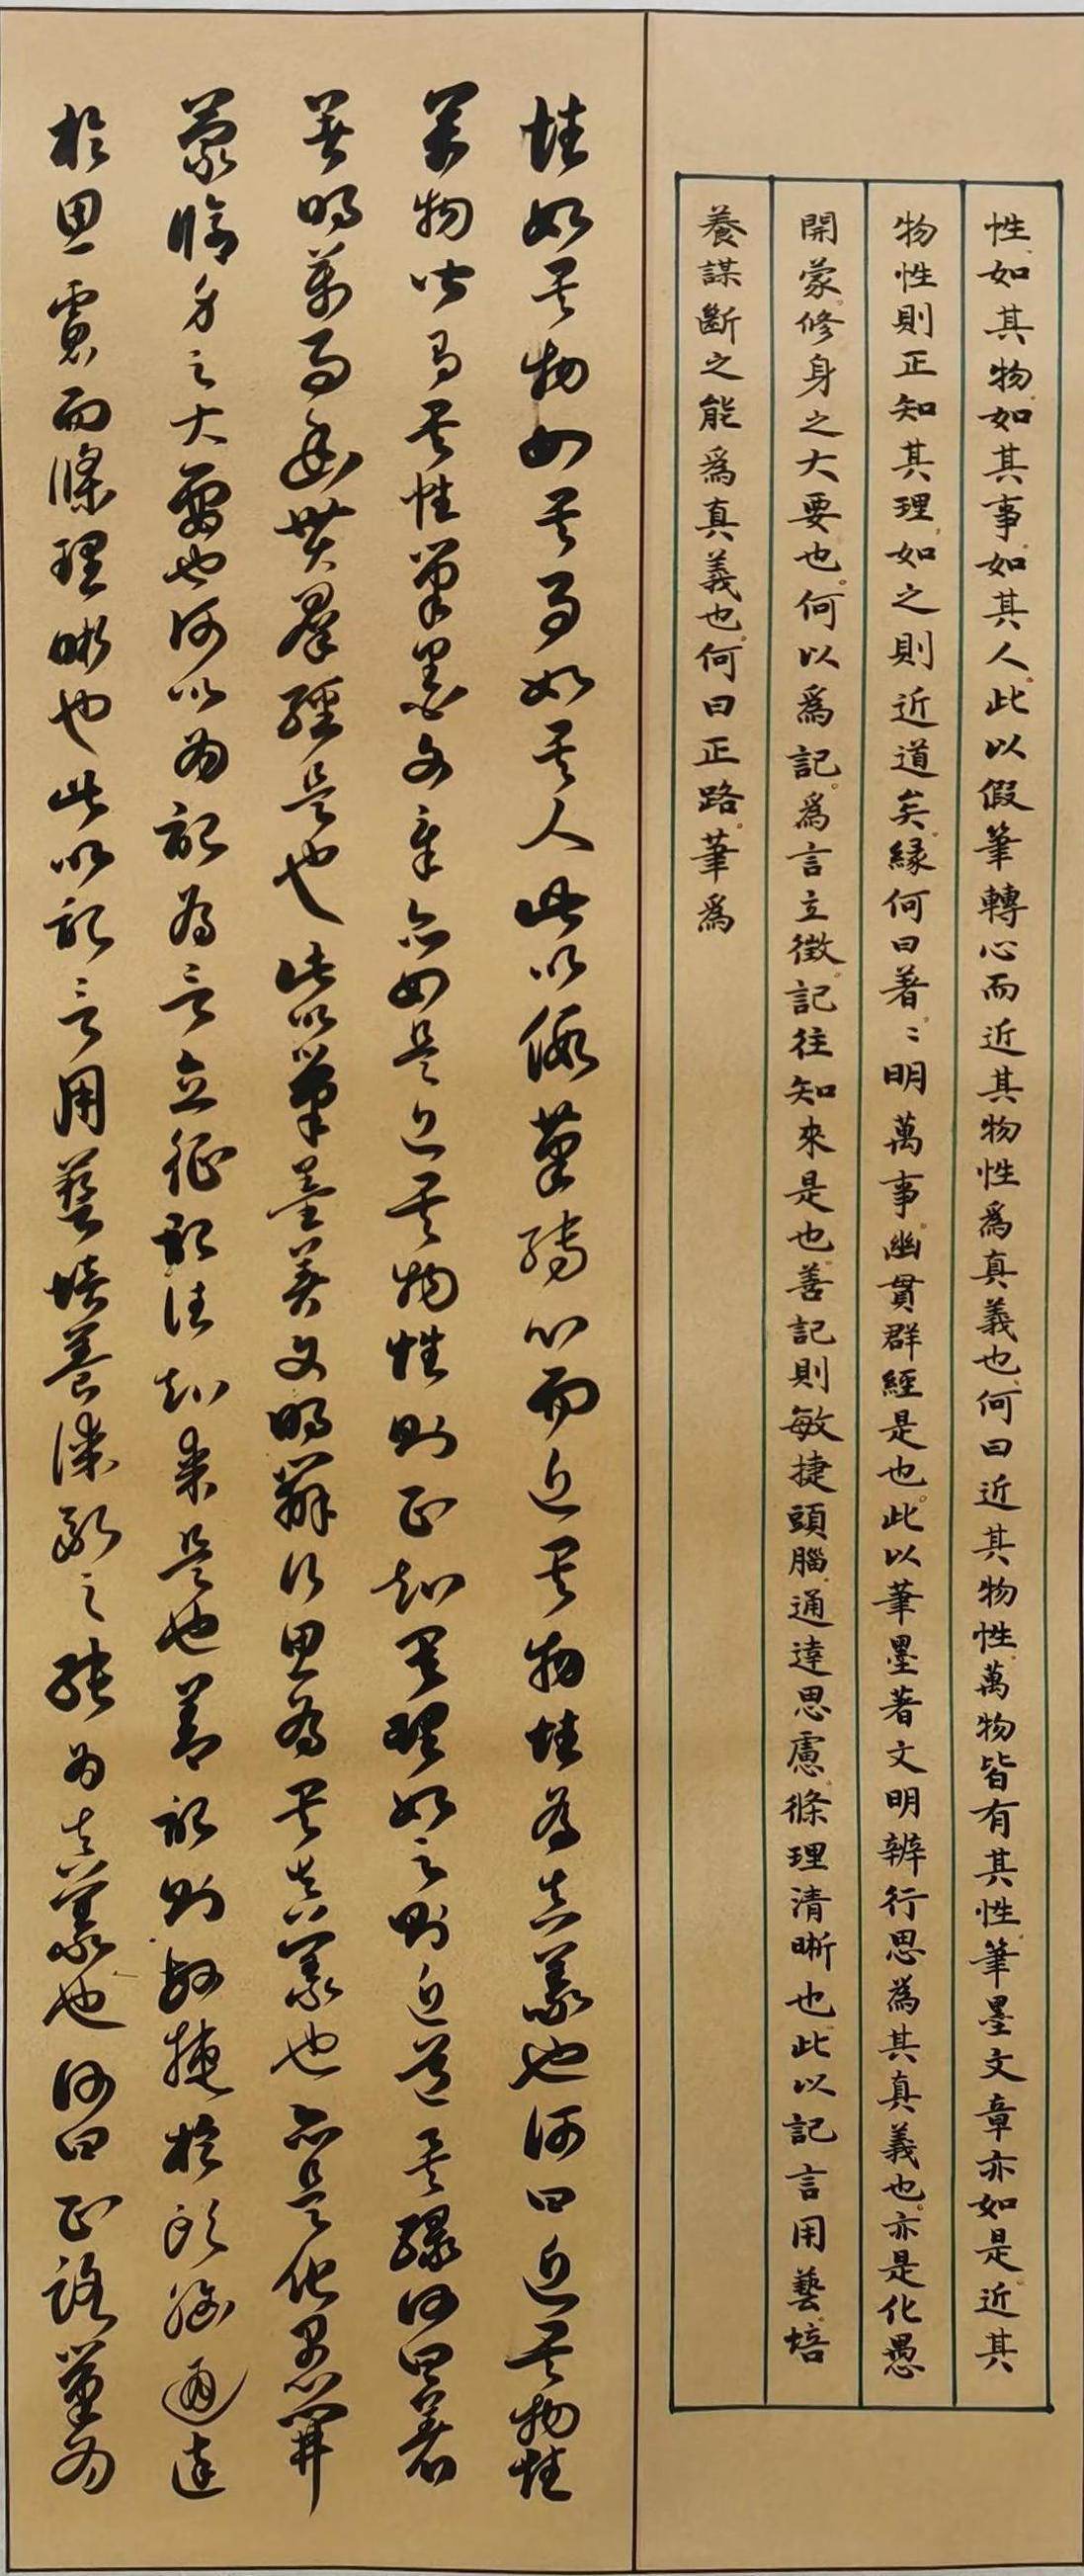 性如其物如其事如其人此以假筆轉心而近其物性爲真義也何曰近其物性萬物皆有其性筆墨文章亦如是近其
物性則正知其理如之則近道矣緣何曰著〻明萬事幽貫群經是也此以筆墨著文明辨行思為其真義也亦是化愚
開蒙修身之大要也何以爲記爲言立徵記往知來是也善記則敏捷頭腦通達思慮條理清晰也此以記言用藝培
養謀斷之能爲真義也何曰正路筆爲
性如其物如其事如其人此以假筆轉心而近其物性為真義也何曰近其物性
萬物皆有其性筆墨文章亦如是近其物性則正知其理如之則近道矣緣何曰著
著明萬事幽貫群經是也此以筆墨著文明辨行思為其真義也亦是化愚開
蒙修身之大要也何以為記為言立征記往知来是也善記則敏捷於頭腦通達
於思慮而條理晰也此以記言用藝培養謀斷之能為真義也何曰正路筆為